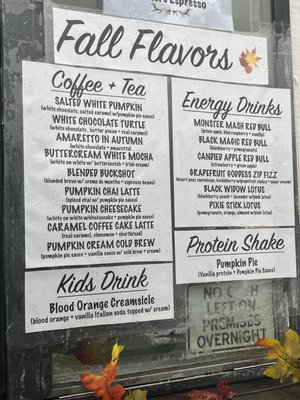 Espresso
Fall Flavors
Coffee + Tea
SALTED WHITE PUMPKIN
(white chocolate, salted caramel w/pumpkin pie sauce)
WHITE CHOCOLATE TURTLE
(white chocolate, butter pecan + real caramel)
AMARETTO IN AUTUMN
(white chocolate + amaretto)
BUTTERCREAM WHITE MOCHA
(white on white w/ buttercream + Irish cream)
BLENDED BUCKSHOT
(blended brew w/ creme de menthe + espresso beans)
PUMPKIN CHAI LATTE
(spiced chai w/ pumpkin pie sauces)
PUMPKIN CHEESECAKE
(white on white w/cheesecake + pumpkin pie sauce)
CARAMEL COFFEE CAKE LATTE
(real caramel, cinnamon + shortbread)
PUMPKIN CREAM COLD BREW
(pumpkin pie sauce + vanilla sauce w/ cold brew + cream)
Kids Drink
Blood Orange Creamsicle
(blood orange + vanilla Italian soda topped w/ cream)
Energy Drinks
MONSTER MASH RED BULL
(green apple, blue raspberry + vanilla)
BLACK MAGIC RED BULL
(blackberry + pomegranate)
CANDIED APPLE RED BULL
(strawberry + green apple)
GRAPEFRUIT GODDESS ZIP FIZZ
BLACK WIDOW LOTUS
(blackberry, peach + lavender w/pink lotus)
PIXIE STIX LOTUS
(pomegranate, orange, almond w/pink lotus)
Protein Shake
Pumpkin Pie
(Vanilla protein + Pumpkin Pie Sauce)
LEFT ON
PREMISES
OVERNIGHT